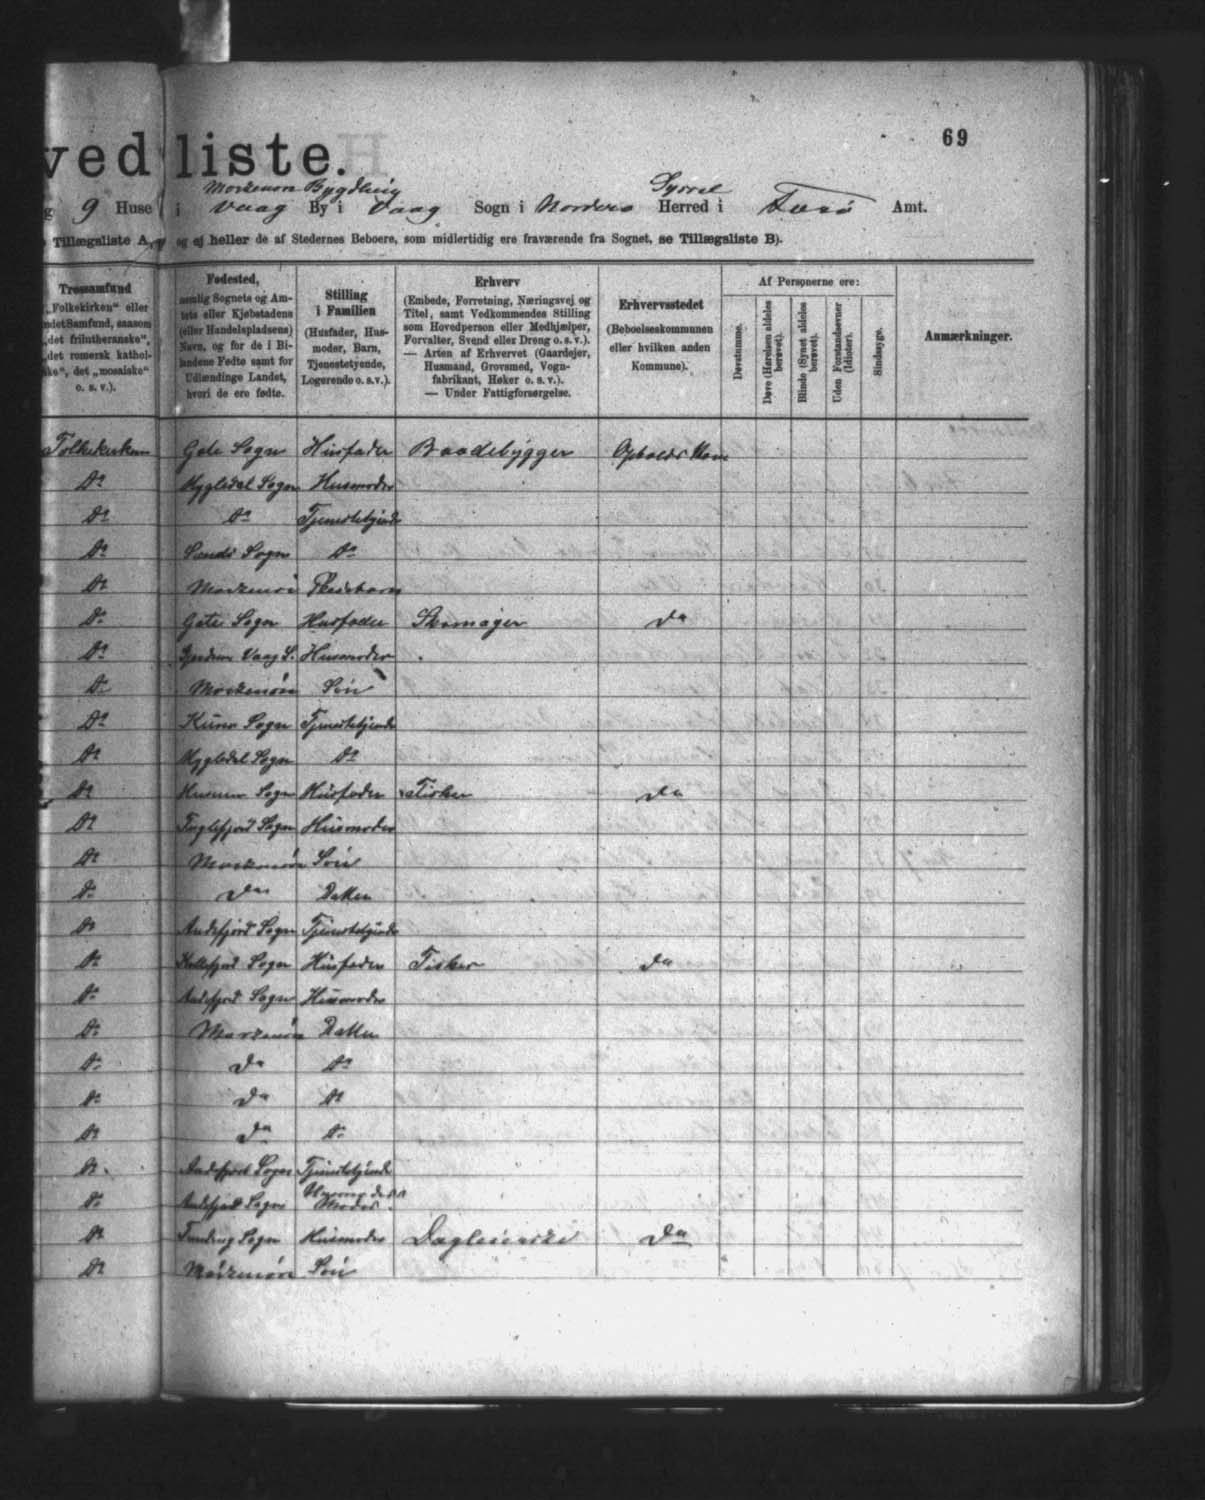 69
ved liste.
Bygdelag Syssel
9 Huse i Vaag By i Vaag Sogn i Norderø Herred i Færø Amt.
Tillægsliste A, og ej heller de af Stedernes Beboere, som midlertidig ere fraværende fra Sognet, se Tillægsliste B).
Trossamfund
„Folkekirken“ eller
andet Samfund, saasom
„det frilutheranske“,
„det romersk kathol-
ske“, det „mosaiske“
o. s. v.).
Fødested,
nemlig Sognets og Am-
tets eller Kjøbstadens
(eller Handelspladsens)
Navn, og for de i Bi-
landene Fødte samt for
Udlændinge Landet,
hvori de ere fødte.
Stilling
i Familien
(Husfader, Hus-
moder, Barn,
Tjenestetyende,
Logerende o. s. v.).
Erhverv
(Embede, Forretning, Næringsvej og
Titel, samt Vedkommendes Stilling
som Hovedperson eller Medhjælper,
Forvalter, Svend eller Dreng o. s. v.).
— Arten af Erhvervet (Gaardejer,
Husmand, Grovsmed, Vogn-
fabrikant, Høker o. s. v.).
— Under Fattigforsørgelse.
Erhvervsstedet
(Beboelseskommunen
eller hvilken anden
Kommune).
Af Personerne ere:
Døvstumme.
Døve (Hørelsen aldeles
berøvet).
Blinde (Synet aldeles
berøvet).
Uden Forstandsevner
(Idioter).
Sindssyge.
Anmærkninger.
Folkekirken Gøte Sogn Husfader Baadebygger Opholds Kom
Do Mygledal Sogn Husmoder
Do Do Tjenestetyende
Do Sandø Sogn Do
Do Plejebarn
Do Gøte Sogn Husfader Skomager Do
Do Vaag S. Husmoder
Do Søn
Do Kunø Sogn Tjenestetyende
Do Mygledal Sogn Do
Do Husum Sogn Husfader Fisker Do
Do Fuglefjord Sogn Husmoder
Do Søn
Do Do Datter
Do Andefjord Sogn Tjenestetyende
Do Kollefjord Sogn Husfader Fisker Do
Do Andefjord Sogn Husmoder
Do Datter
Do Do Do
Do Do Do
Do Do Do
Do Andefjord Sogn Tjenestetyende
Do Andefjord Sogn Moder
Do Funding Sogn Husmoder Daglejerske Do
Do Søn